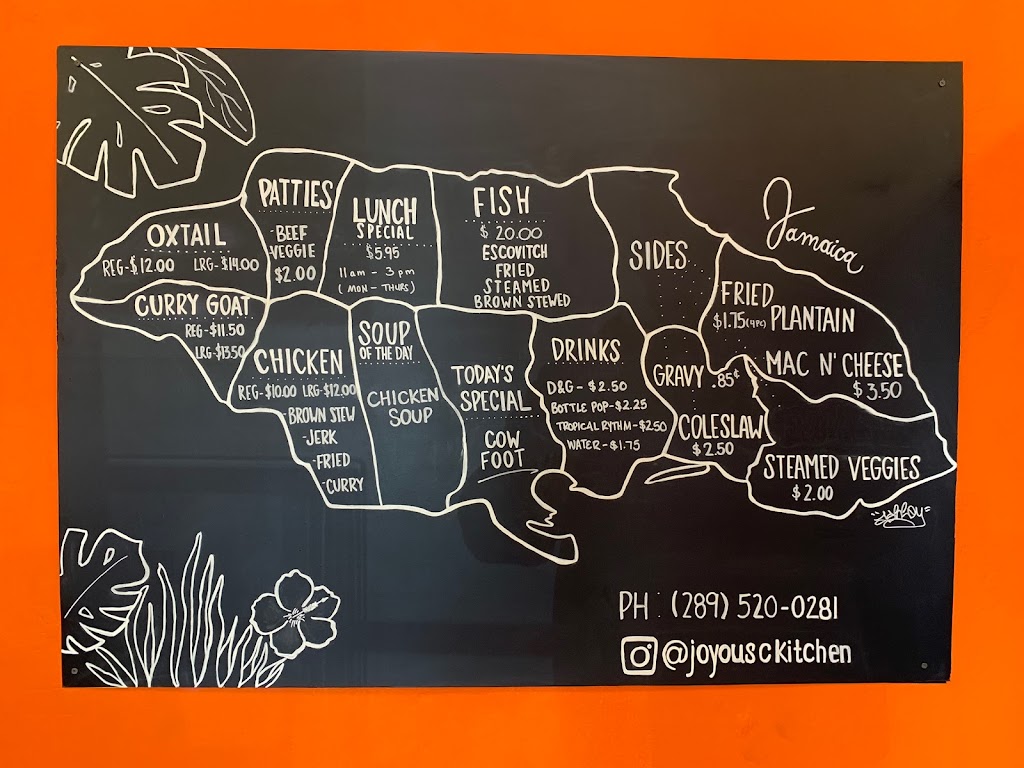 Jamaica
OXTAIL
REG-$12.00 LRG-$14.00
CURRY GOAT
REG-$11.50
LRG-$13.50
PATTIES
-BEEF
-VEGGIE
$2.00
LUNCH
SPECIAL
$5.95
11am - 3pm
(MON - THURS)
FISH
$20.00
ESCOVITCH
FRIED
STEAMED
BROWN STEWED
SIDES
FRIED
$1.75(4pc) PLANTAIN
MAC N' CHEESE
$3.50
GRAVY .85¢
COLESLAW
$2.50
STEAMED VEGGIES
$2.00
CHICKEN
REG-$10.00 LRG-$12.00
-BROWN STEW
-JERK
-FRIED
-CURRY
SOUP
OF THE DAY
CHICKEN
SOUP
TODAY'S
SPECIAL
COW
FOOT
DRINKS
D&G - $2.50
BOTTLE POP-$2.25
TROPICAL RYTHM-$2.50
WATER-$1.75
PH : (289) 520-0281
@joyousckitchen